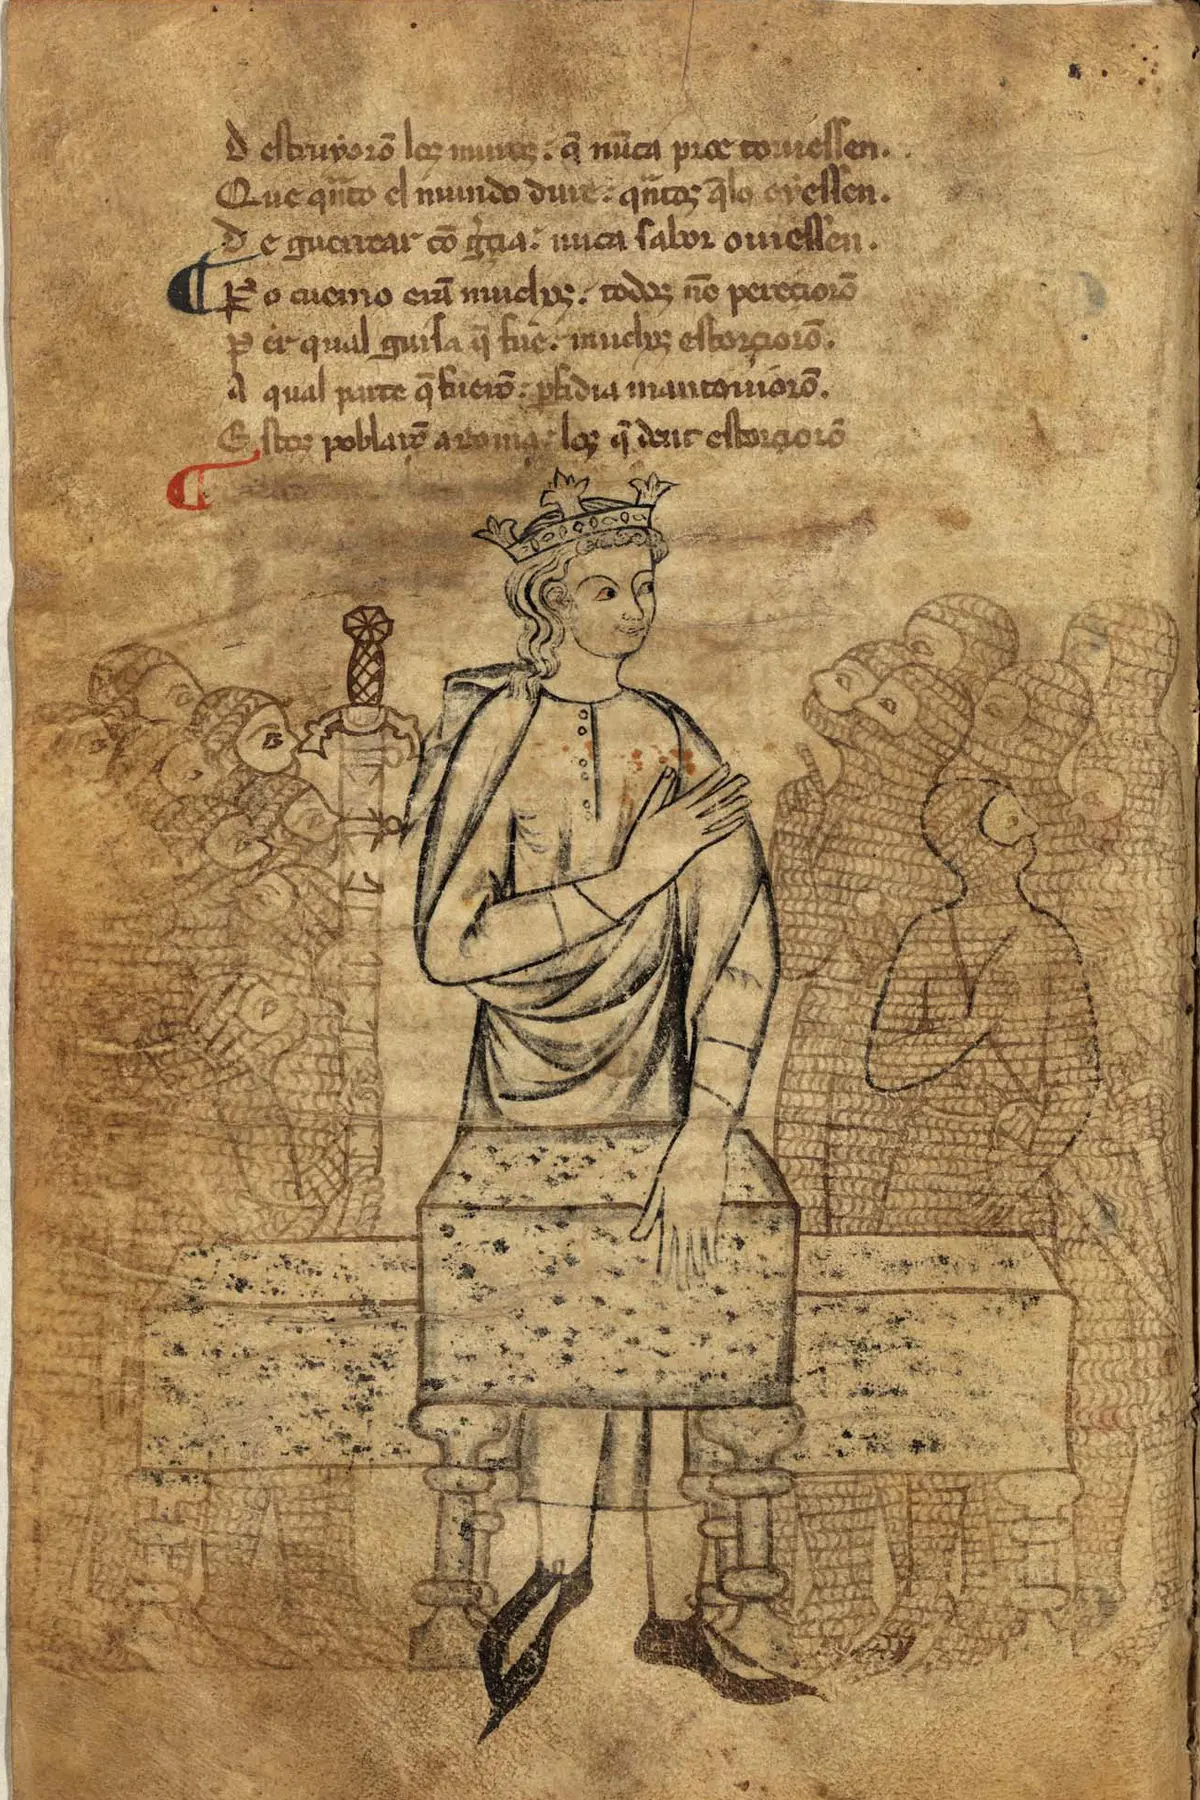 D estruyoro᷅ los muros : q̄ nu᷅ca proe touiessen .
Que qua᷅to el mundo dure : qua᷅tos q̄lo oyessen .
D e guerrear co᷅ greçia : nuca sabor ouiessen .
¶ P o cuemo era᷅ muchos : todos no᷅ pereçioro᷅
P er qual guisa q̄ fue : muchos estorçioro᷅ .
A qual parte q̄ fuero᷅ : ꝑfidia mantouioro᷅ .
E stos poblaro᷅ a roma : los q̄ dent estorçioro᷅
¶